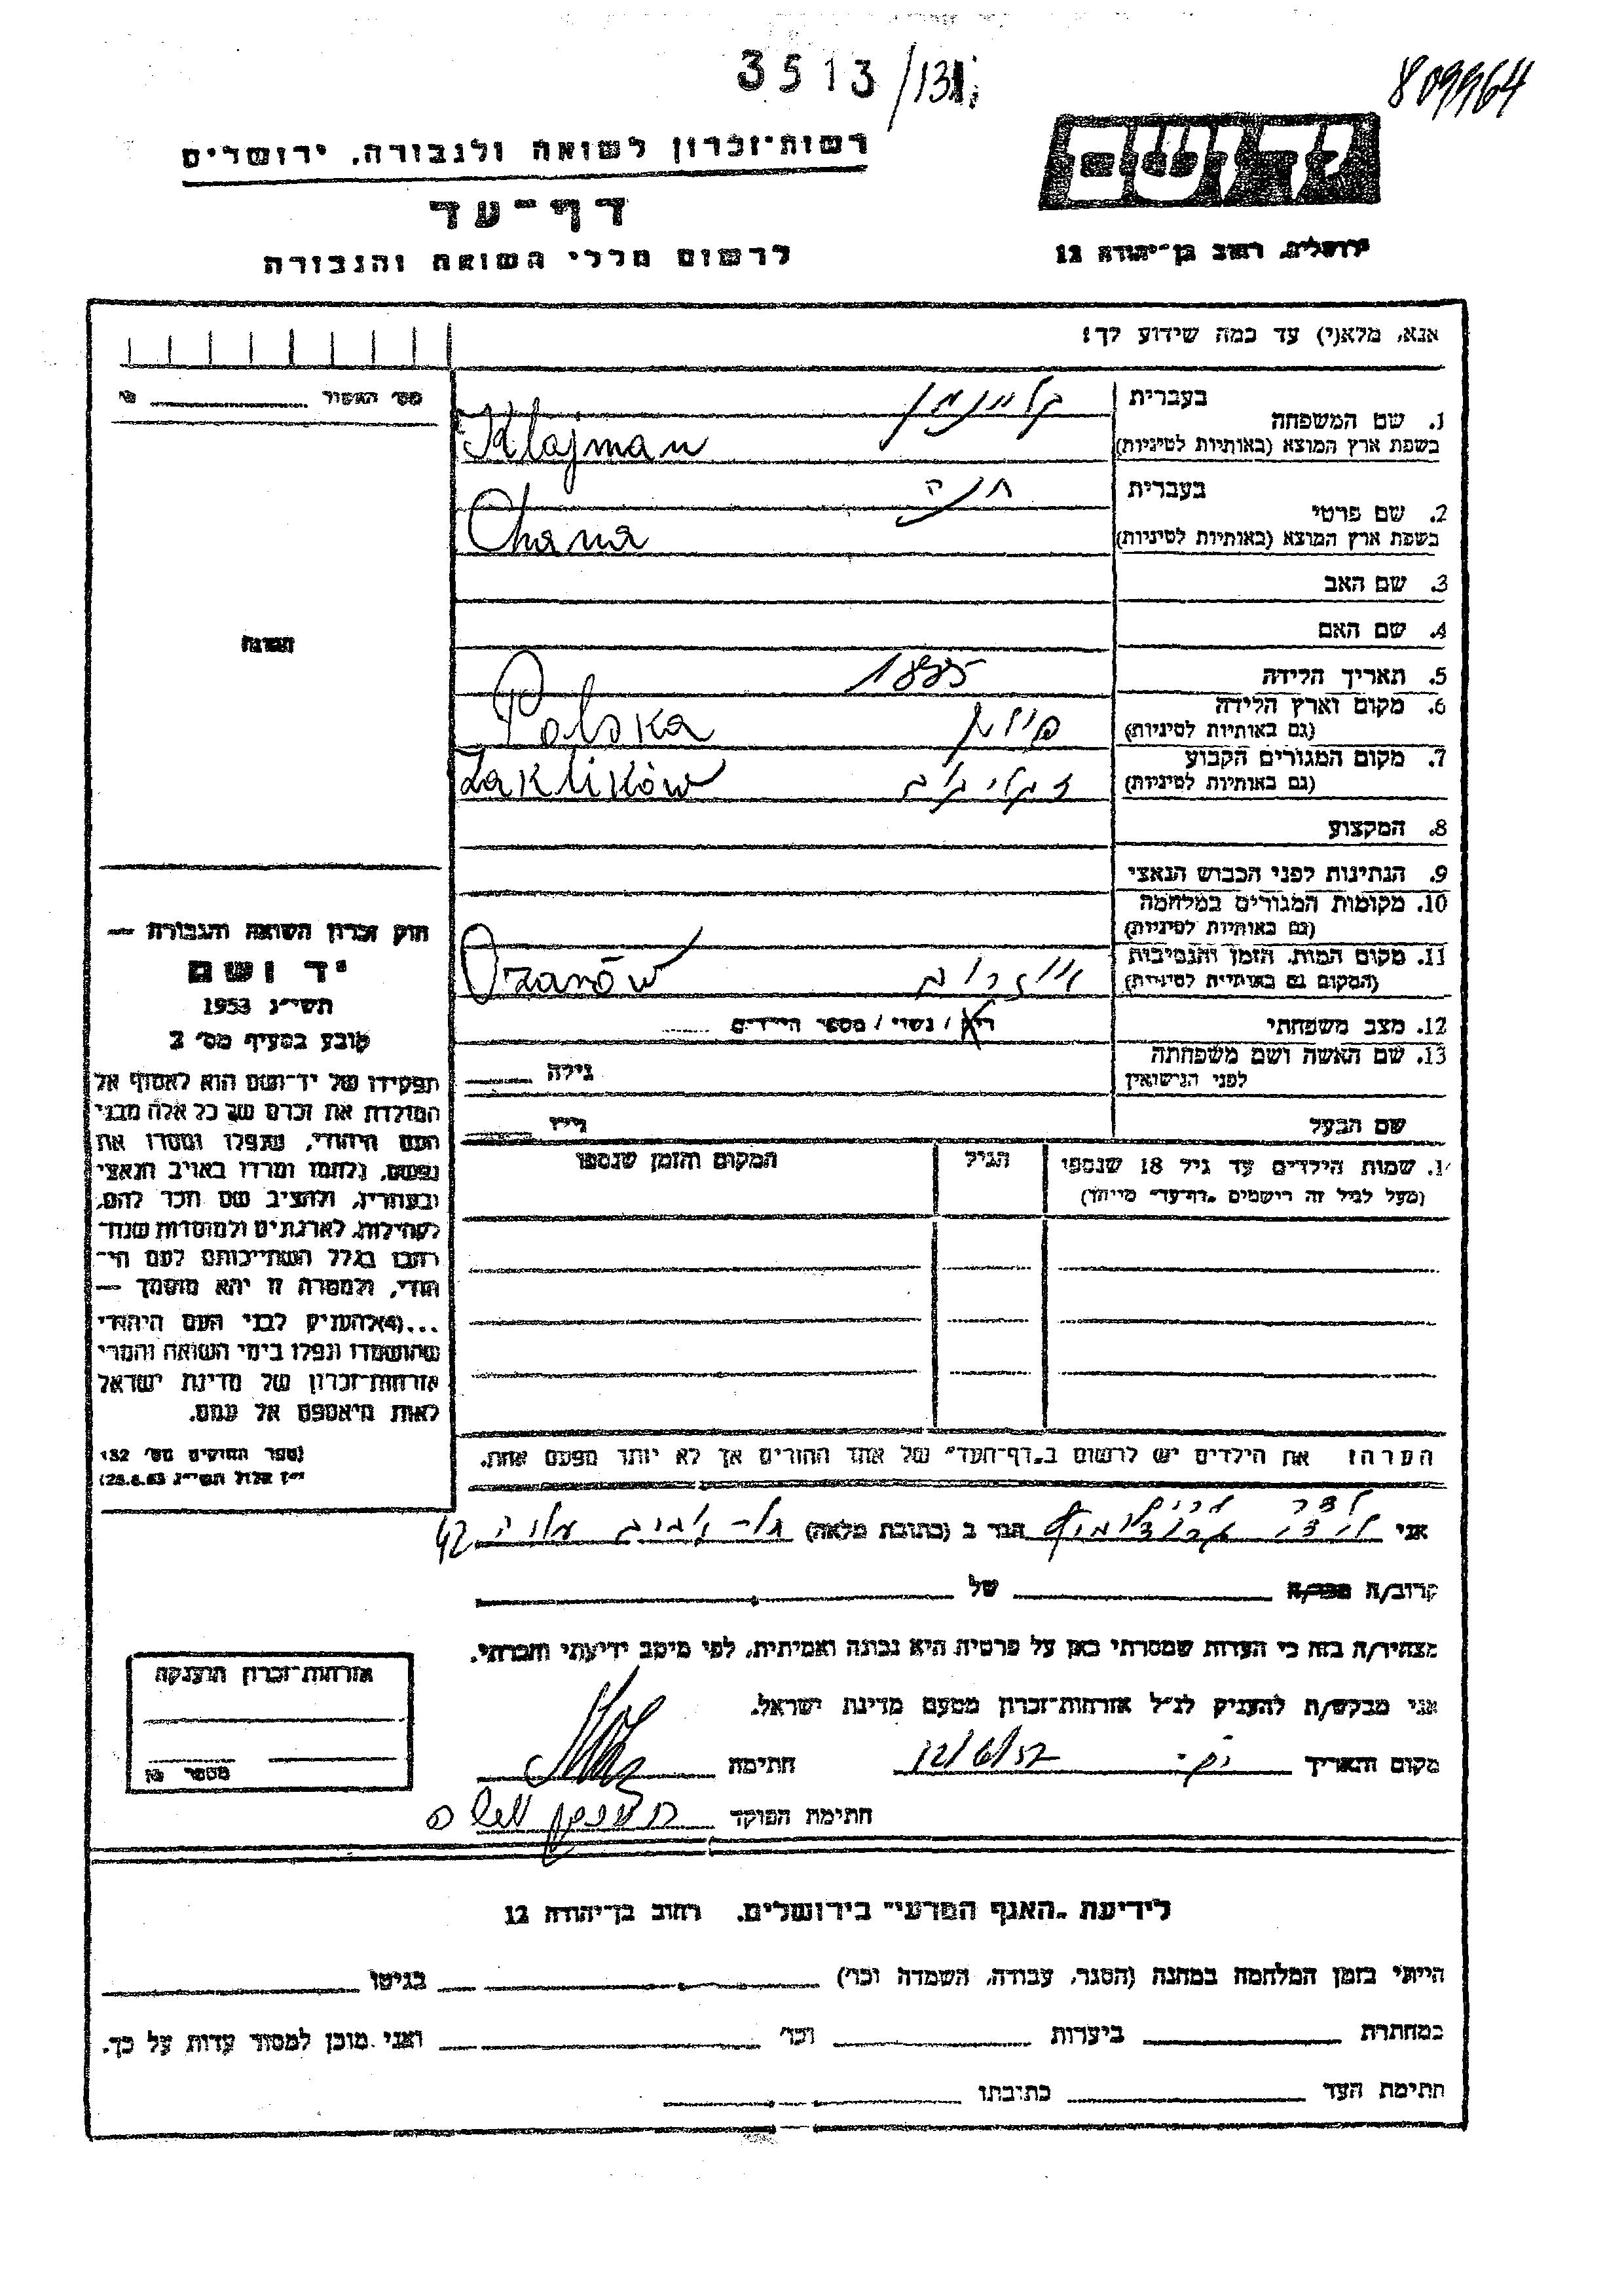 3513/131
809964
רשות-זכרון לשואה ולגבורה, ירושלים
יד ושם
דף-עד
לרשום חללי השואה והגבורה
ירושלים, רחוב בן-יהודה 12
אנא, מלא(י) עד כמה שידוע לך:
מס' האשור
1. שם המשפחה
בעברית קליימן
בשפת ארץ המוצא (באותיות לטיניות) Klajman
2. שם פרטי
בעברית חנה
בשפת ארץ המוצא (באותיות לטיניות) Chana
3. שם האב
4. שם האם
5. תאריך הלידה 1885
6. מקום וארץ הלידה
(גם באותיות לטיניות) פולין Polska
7. מקום המגורים הקבוע
(גם באותיות לטיניות) זקליקוב Zaklików
8. המקצוע
9. הנתינות לפני הכבוש הנאצי
10. מקומות המגורים במלחמה
(גם באותיות לטיניות)
11. מקום המות, הזמן והנסיבות
(המקום גם באותיות לטיניות) Orzanów
12. מצב משפחתי רוק / נשוי / מספר הילדים
13. שם האשה ושם משפחתה
לפני הנישואין גילה
שם הבעל גילו
שמות הילדים עד גיל 18 שנספו הגיל המקום והזמן שנספו
(מעל לגיל זה רישמים "דף-עד" מיוחד)
הערה: את הילדים יש לרשום ב"דף-העד" של אחד ההורים אך לא יותר מפעם אחת.
התמונה
חוק זכרון השואה והגבורה —
יד ושם
תשי"ג 1953
קובע בסעיף מס' 2
תפקידו של יד-ושם הוא לאסוף אל
המולדת את זכרם של כל אלה מבני
העם היהודי, שנפלו ומסרו את
נפשם, נלחמו ומרדו באויב הנאצי
ובעוזריו, ולהציב שם וזכר להם,
לקהילות, לארגונים ולמוסדות שנח־
רבו בגלל השתייכותם לעם הי־
הודי, ולמטרה זו יהא מוסמך —
...(4) להעניק לבני העם היהודי
שהושמדו ונפלו בימי השואה והמרי
אזרחות-זכרון של מדינת ישראל
לאות היאספם אל עמם.
(ספר החוקים מס' 132
י"ז אלול תשי"ג 28.8.53)
אני הגר ב (כתובת מלאה) תל-אביב 42
קרוב/ה מכר/ה של
מצהיר/ה בזה כי העדות שמסרתי כאן על פרטיה היא נכונה ואמיתית, לפי מיטב ידיעתי והכרתי.
אני מבקש/ת להעניק לנ"ל אזרחות-זכרון מטעם מדינת ישראל.
מקום ותאריך 12/6/57 חתימה
חתימת הפוקד
אזרחות-זכרון הוענקה
מספר
לידיעת "האגף המדעי" בירושלים, רחוב בן-יהודה 12
הייתי בזמן המלחמה במחנה (הסגר, עבודה, השמדה וכו') בגיטו
במחתרת ביערות וכו' ואני מוכן למסור עדות על כך.
חתימת העד כתובתו